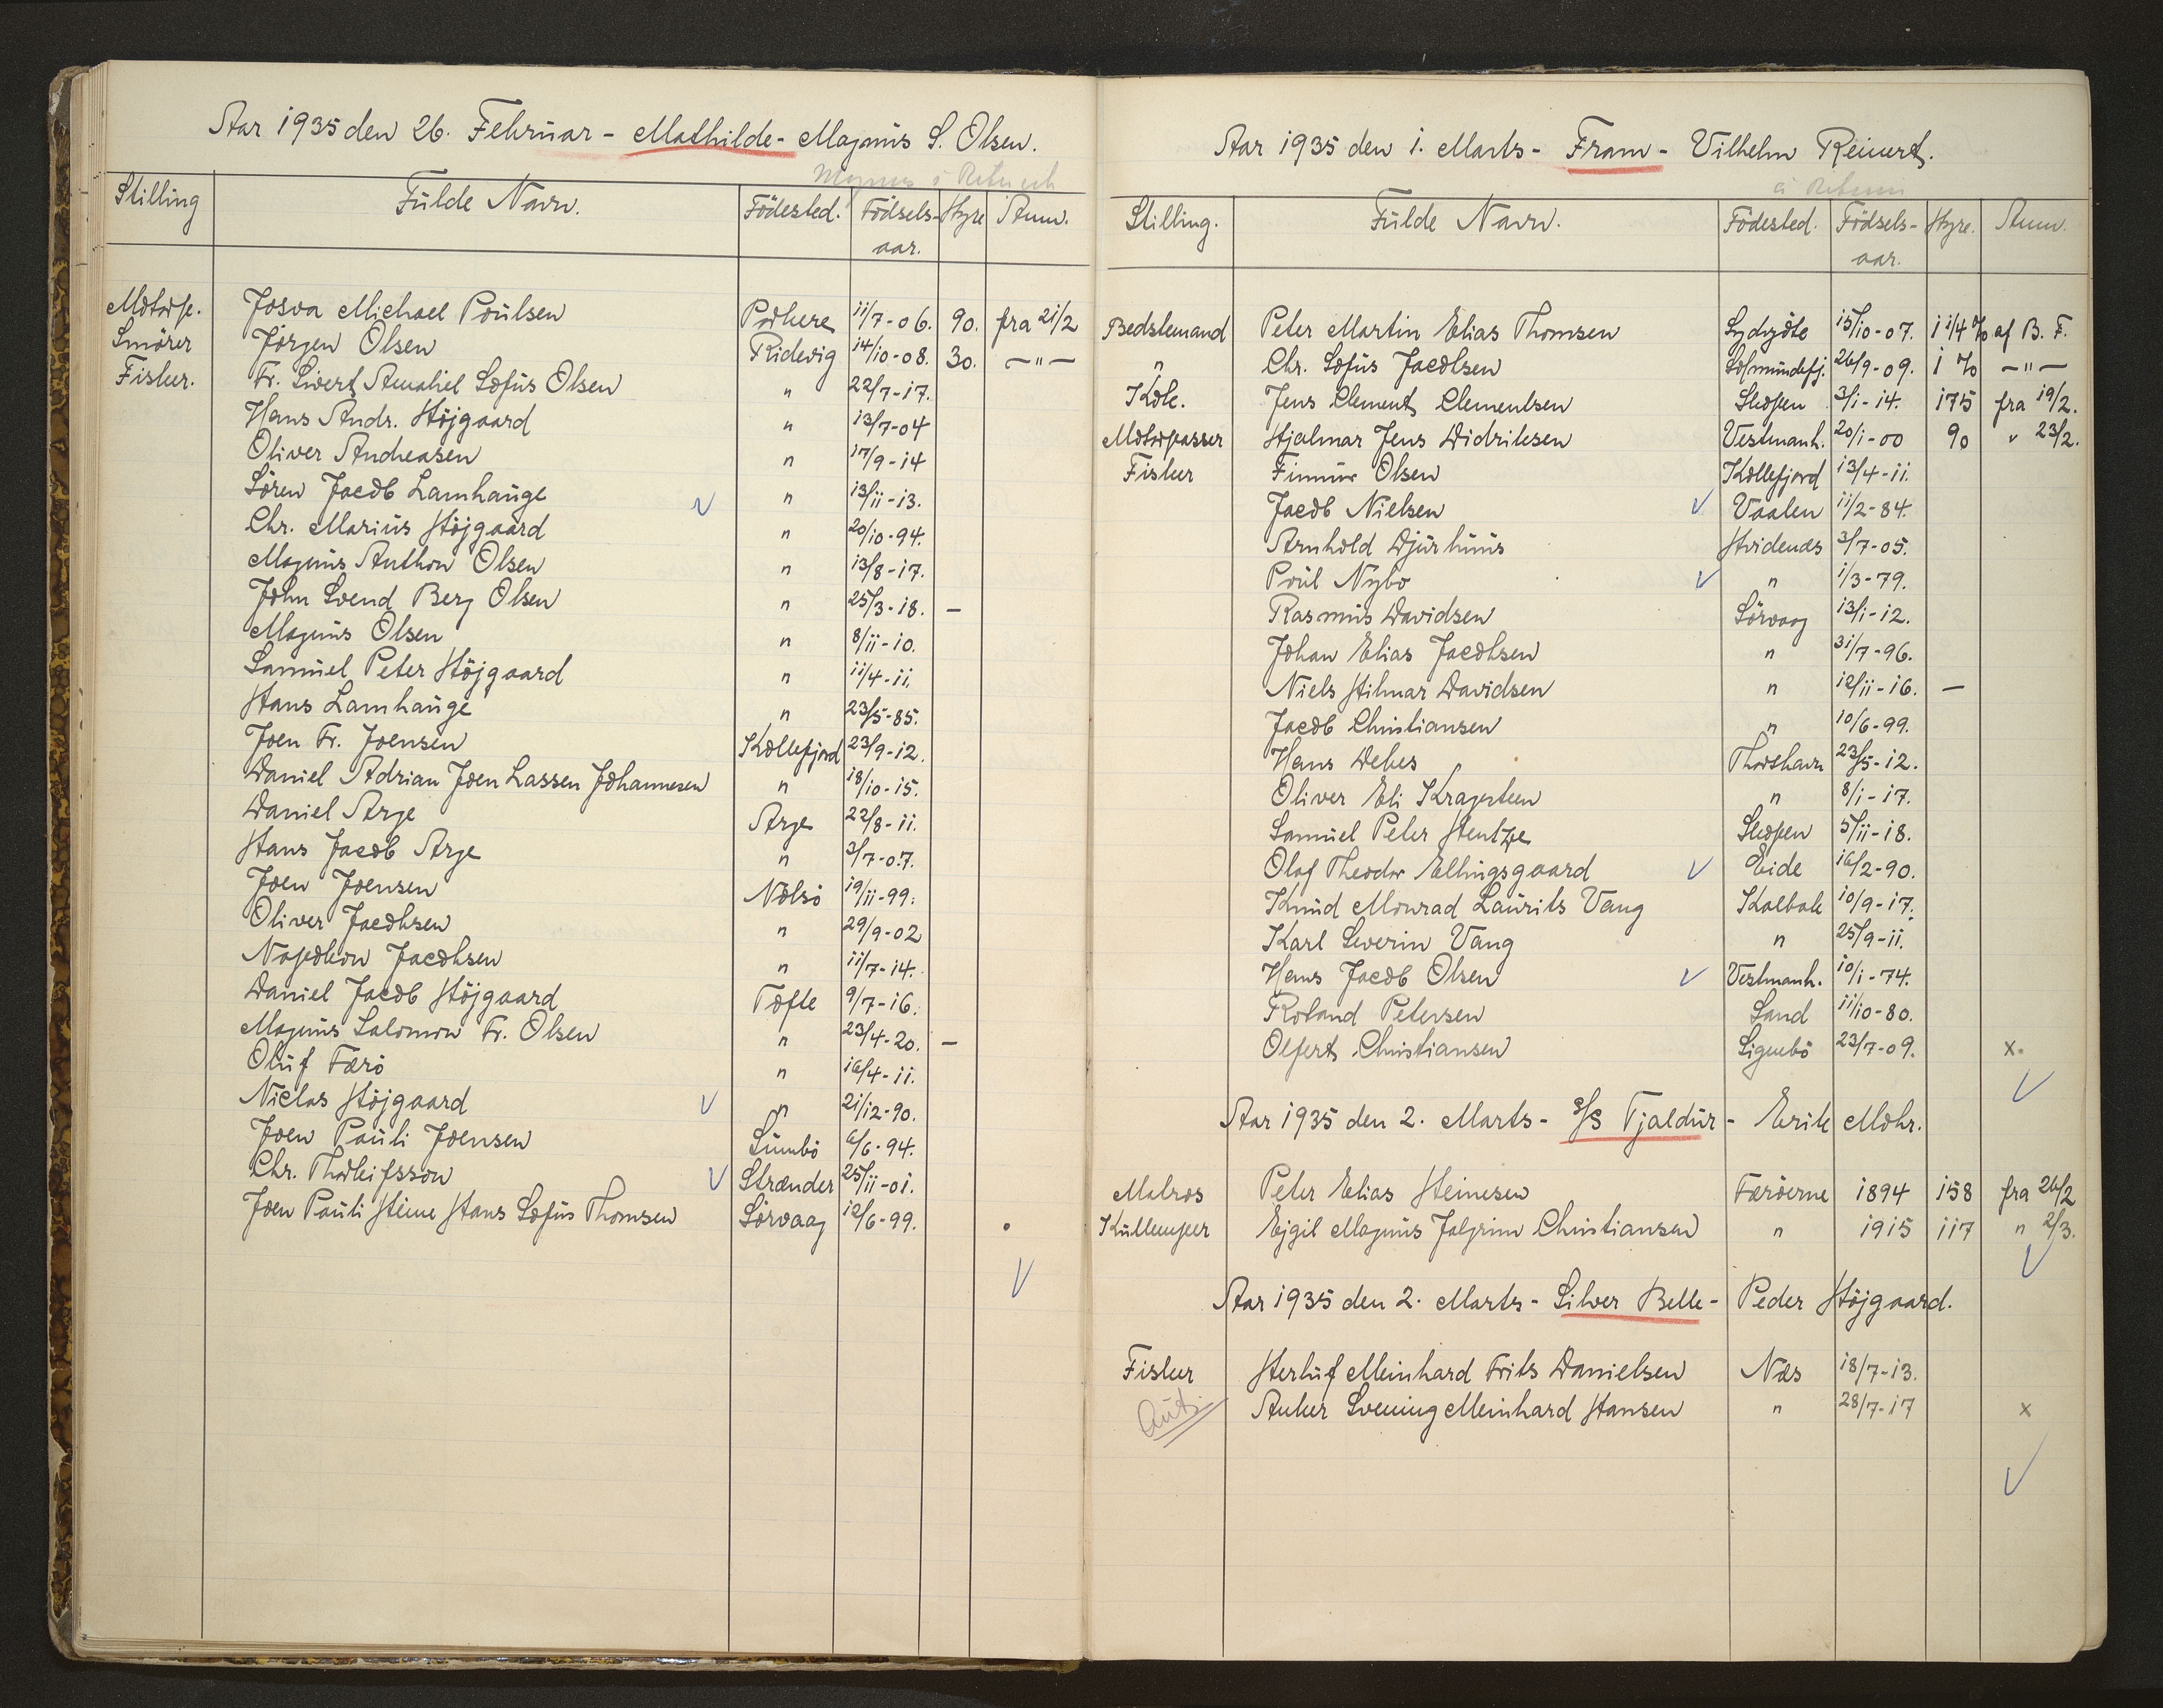 Aar 1935 den 26. Februar - Mathilde - Magnus S. Olsen.
Magnus á
Stilling Fulde Navn. Födested. Födsels-aar. Hyre Anm.
Motorp. Josva Michael Poulsen Porkere 11/7-06. 90. fra 21/2
Smörer Jörgen Olsen Ridevig 14/10-08. 30. —"—
Fisker. Fr. Sivert Amaliel Sofus Olsen " 22/7-17.
Hans Andr. Höjgaard " 13/7-04
Oliver Andreasen " 17/9-14
Sören Jacob Lamhauge " 13/11-13.
Chr. Marius Höjgaard " 20/10-94.
Magnus Anthon Olsen " 13/8-17.
John Svend Berg Olsen " 25/3-18. —
Magnus Olsen " 8/11-10.
Samuel Peter Höjgaard " 11/4-11.
Hans Lamhauge " 23/5-85.
Joen Fr. Joensen Kollefjord 23/9-12.
Daniel Adrian Joen Lassen Johannesen " 18/10-15.
Daniel Arge Arge 22/8-11.
Hans Jacob Arge " 3/7-07.
Joen Joensen Nolsö 19/11-99.
Oliver Jacobsen " 29/9-02
Napoleon Jacobsen " 11/7-14.
Daniel Jacob Höjgaard Tofte 9/7-16.
Magnus Salomon Fr. Olsen " 23/4-20. —
Oluf Færö " 16/4-11.
Niclas Höjgaard " 21/12-90.
Joen Pauli Joensen Sumbö 6/6-94.
Chr. Thorleifsson Strænder 25/11-01.
Joen Pauli Heine Hans Sofus Thomsen Sörvaag 12/6-99.
Aar 1935 den 1. Marts - Fram - Vilhelm Reinert.
Stilling. Fulde Navn. Födested. Födsels-aar. Hyre. Anm.
Bedstemand Peter Martin Elias Thomsen Sydrygöte 15/10-07. 1 1/4 % af B. F.
" Chr. Sofus Jacobsen Solmundefj. 26/9-09. 1 % —"—
Kok. Jens Clement Clementsen Skopen 3/1-14. 175 fra 19/2.
Motorpasser Hjalmar Jens Didriksen Vestmanh. 20/1-00 90 " 23/2.
Fisker Finnur Olsen Kollefjord 13/4-11.
Jacob Nielsen Vaalen 11/2-84.
Arnhold Djurhuus Hvidenæs 3/7-05.
Poul Nybo " 1/3-79.
Rasmus Davidsen Sörvaag 13/1-12.
Johan Elias Jacobsen " 31/7-96.
Niels Hilmar Davidsen " 12/11-16. —
Jacob Christiansen " 10/6-99.
Hans Debes Thorshavn 23/5-12.
Oliver Eli Kragesteen " 8/1-17.
Samuel Peter Hentze Skopen 5/11-18.
Olaf Theodor Ellingsgaard Eide 16/2-90.
Knud Monrad Laurits Vang Kaldbak 10/9-17.
Karl Severin Vang " 25/9-11.
Hans Jacob Olsen Vestmanh. 10/1-74.
Roland Petersen Sand 11/10-80.
Olfert Christiansen Signebö 23/7-09. x.
Aar 1935 den 2. Marts - s/s Tjaldur - Erik Mohr.
Matros Peter Elias Heinesen Færöerne 1894 158 fra 26/2
Kullemper Ejgil Magnus Jalgrim Christiansen " 1915 117 " 2/3.
Aar 1935 den 2. Marts - Silver Belle - Peder Höjgaard.
Fisker Herluf Meinhard Frits Danielsen Næs 18/7-13.
Anker Svenning Meinhard Hansen " 28/7-17 x